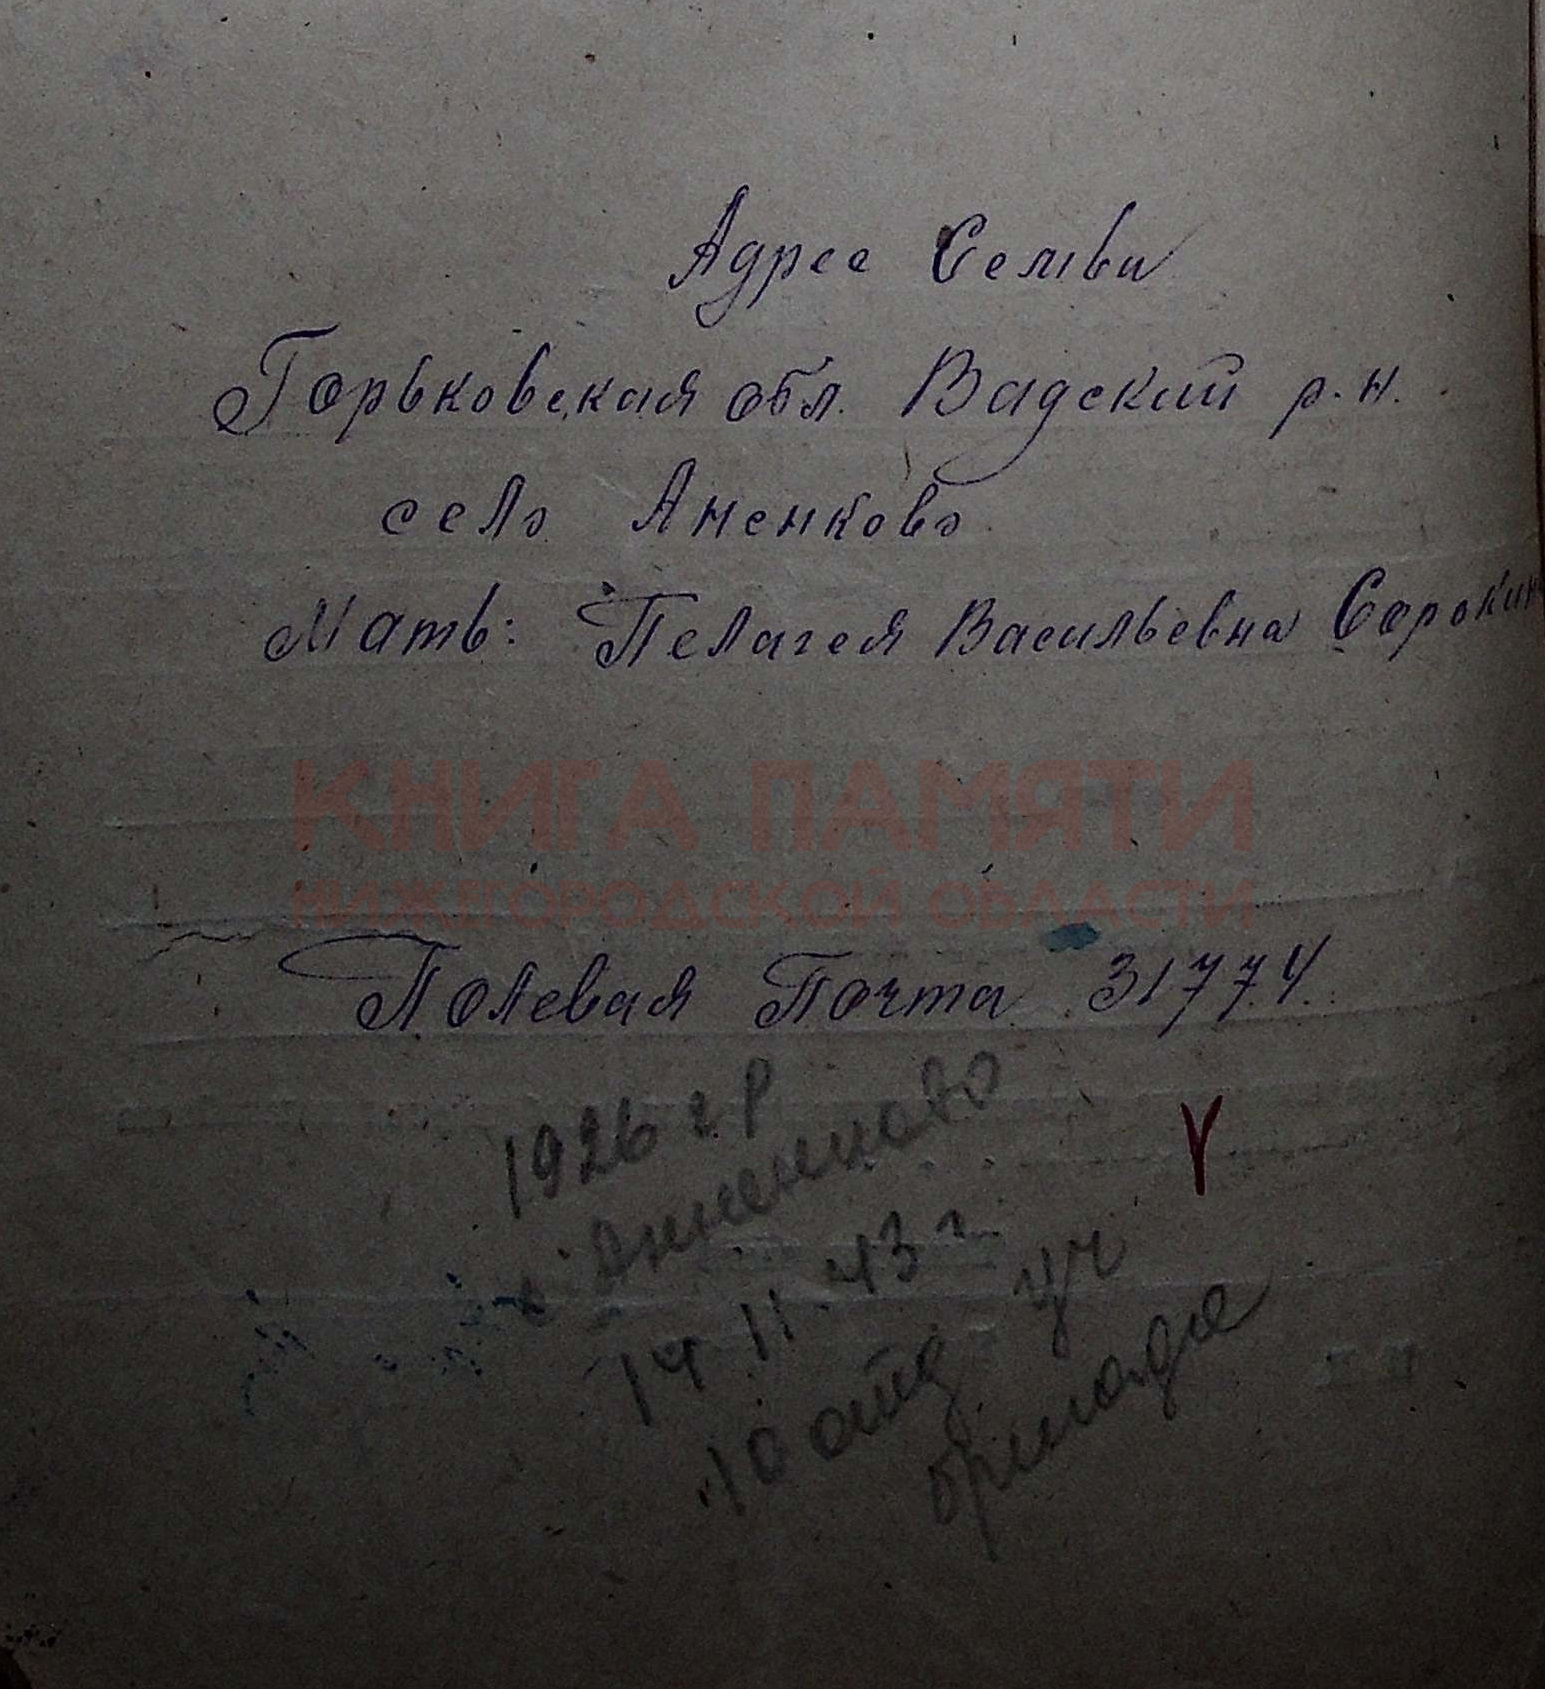 Адрес Семьи
Горьковская обл. Вадский р-н.
село Аненково
Мать: Пелагея Васильевна Сорокин
КНИГА ПАМЯТИ
НИЖЕГОРОДСКОЙ ОБЛАСТИ
Полевая Почта 31774.
1926 г р
с. Анненково
14 11. 43 г
10 отд уч
бригада